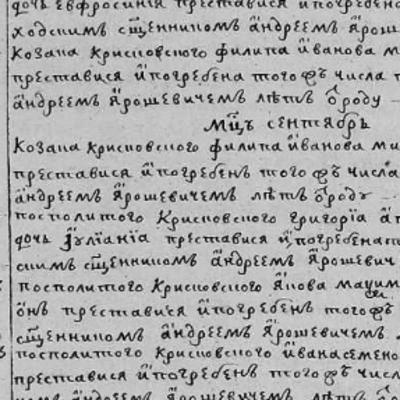 дочь евфросиния преставися и погребена
ходскимъ сщ҃енникомъ андреемъ ярош
козака крисковского филипа иванова м
преставися и погребена того ѫъ числа п
андреемъ ярошевичемъ лѣтъ ѿроду
Мц҃ъ сентябрь
козака крисковского филипа иванова ми
преставися и погребенъ того ѫъ числа
андреемъ ярошевичемъ лѣтъ ѿроду
посполитого крисковского григорїа
дочь Іулїанїа преставися и погребена
скимъ сщ҃енникомъ андреемъ ярошевич
посполитого крисковского якова
онъ преставися и погребенъ того ѫъ
сщ҃енникомъ андреемъ ярошевичемъ
посполитого крисковского ивана семено
преставися и погребенъ того ѫъ числ
андреемъ ярошевичемъ лѣтъ